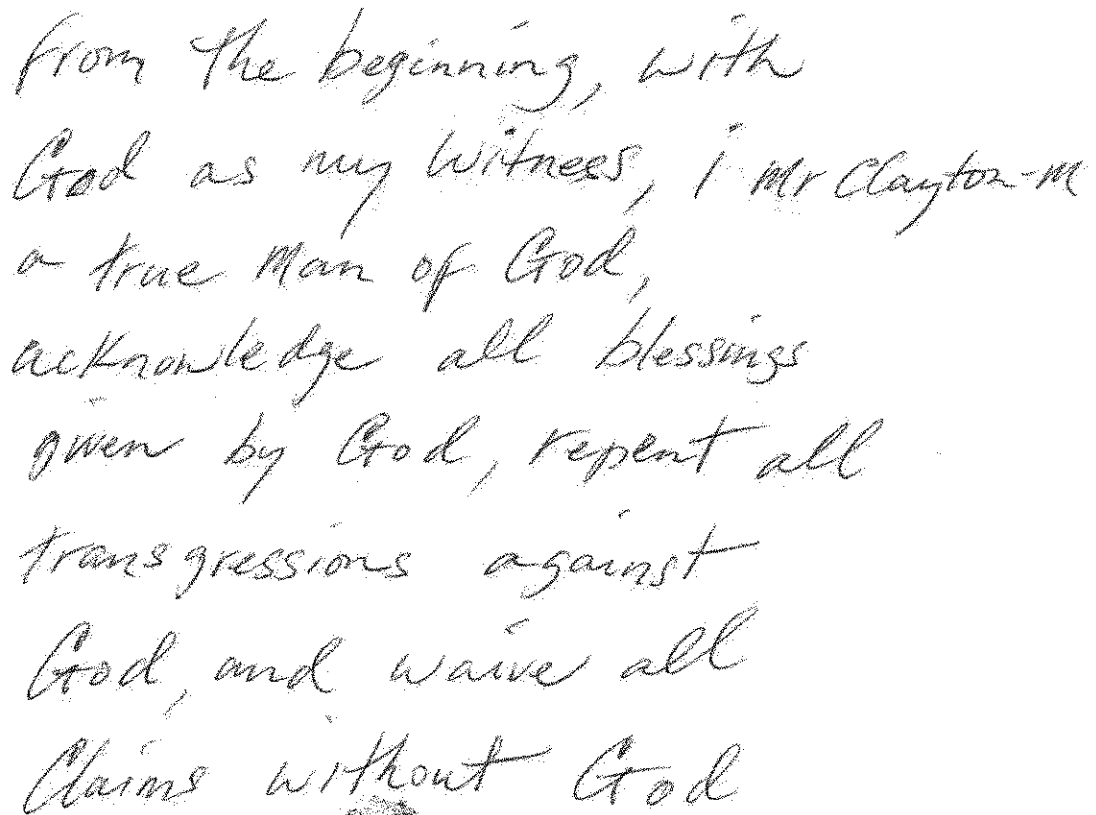 from the beginning, with
God as my Witness, i Mr Clayton-M
a true Man of God,
acknowledge all blessings
given by God, repent all
transgressions against
God, and waive all
Claims without God